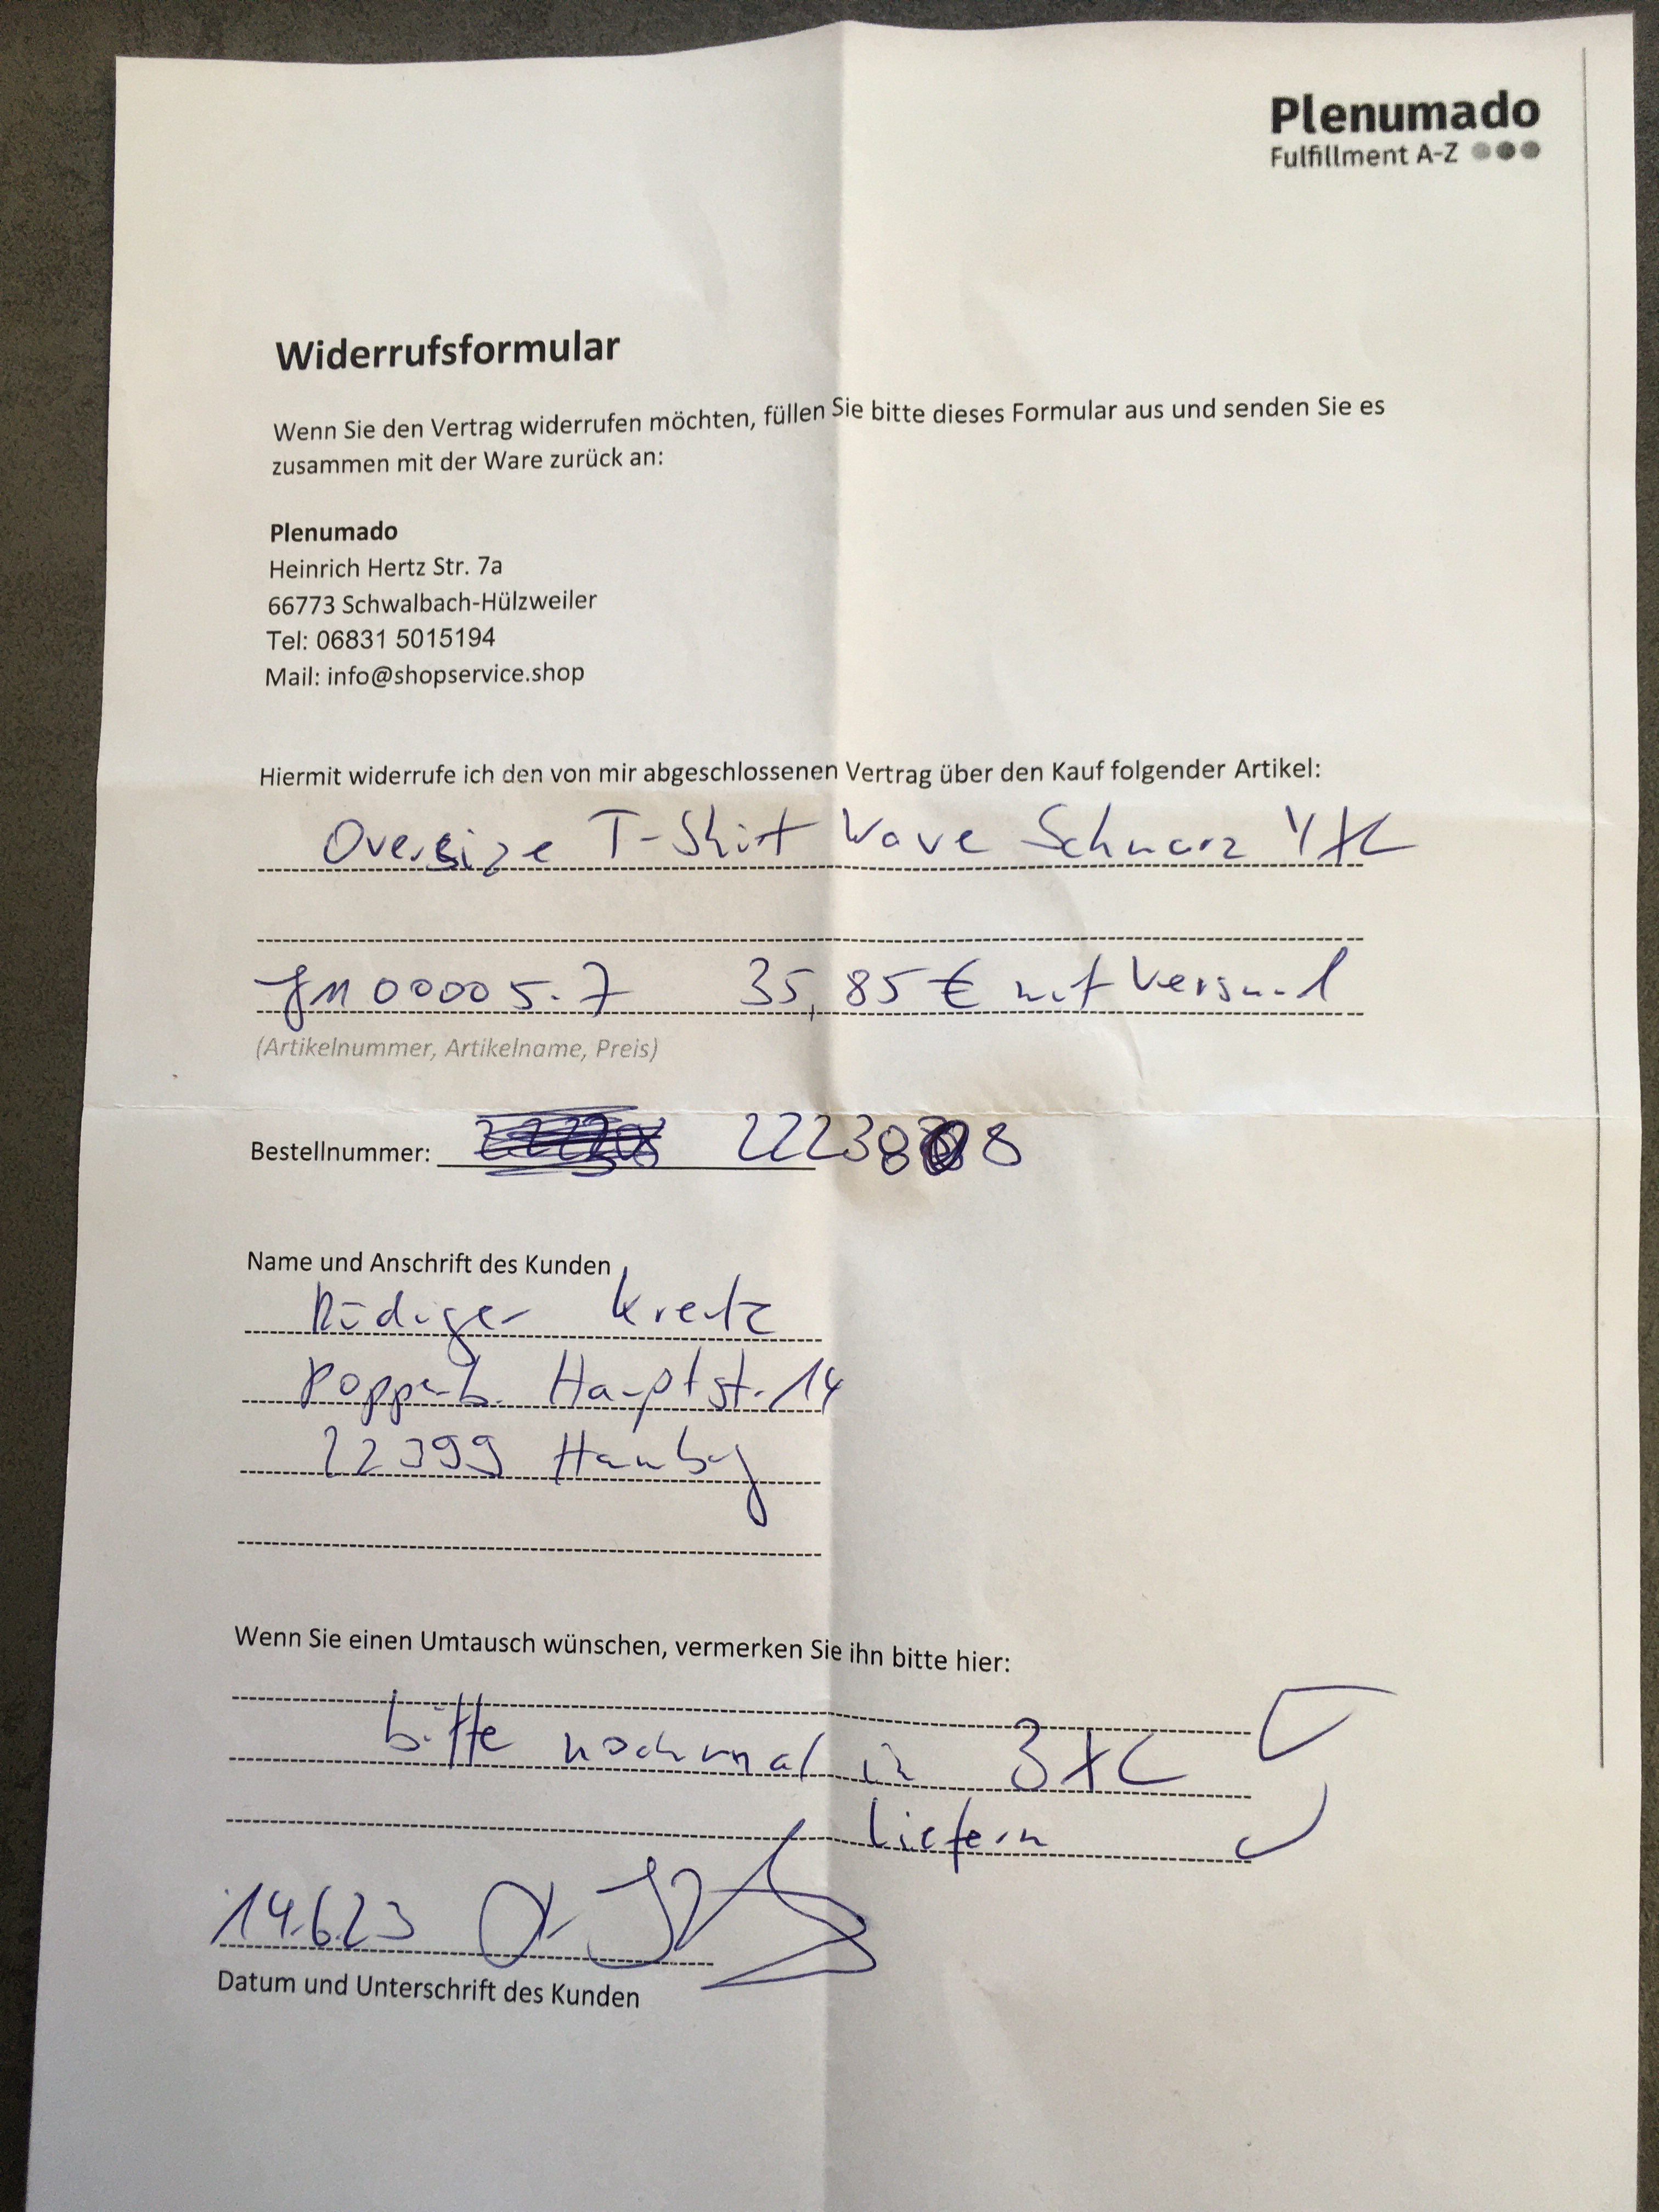 Plenumado
Fulfillment A-Z
Widerrufsformular
Wenn Sie den Vertrag widerrufen möchten, füllen Sie bitte dieses Formular aus und senden Sie es
zusammen mit der Ware zurück an:
Plenumado
Heinrich Hertz Str. 7a
66773 Schwalbach-Hülzweiler
Tel: 06831 5015194
Mail: info@shopservice.shop
Hiermit widerrufe ich den von mir abgeschlossenen Vertrag über den Kauf folgender Artikel:
Oversize T-Shirt Wave Schwarz 4XL
00005.7 35,85 € mit Versand
(Artikelnummer, Artikelname, Preis)
Bestellnummer:
Name und Anschrift des Kunden
Rüdiger Kretz
Poppenb. Hauptst. 14
22399 Hamburg
Wenn Sie einen Umtausch wünschen, vermerken Sie ihn bitte hier:
bitte nochmal in 3XL
liefern
14.6.23
Datum und Unterschrift des Kunden